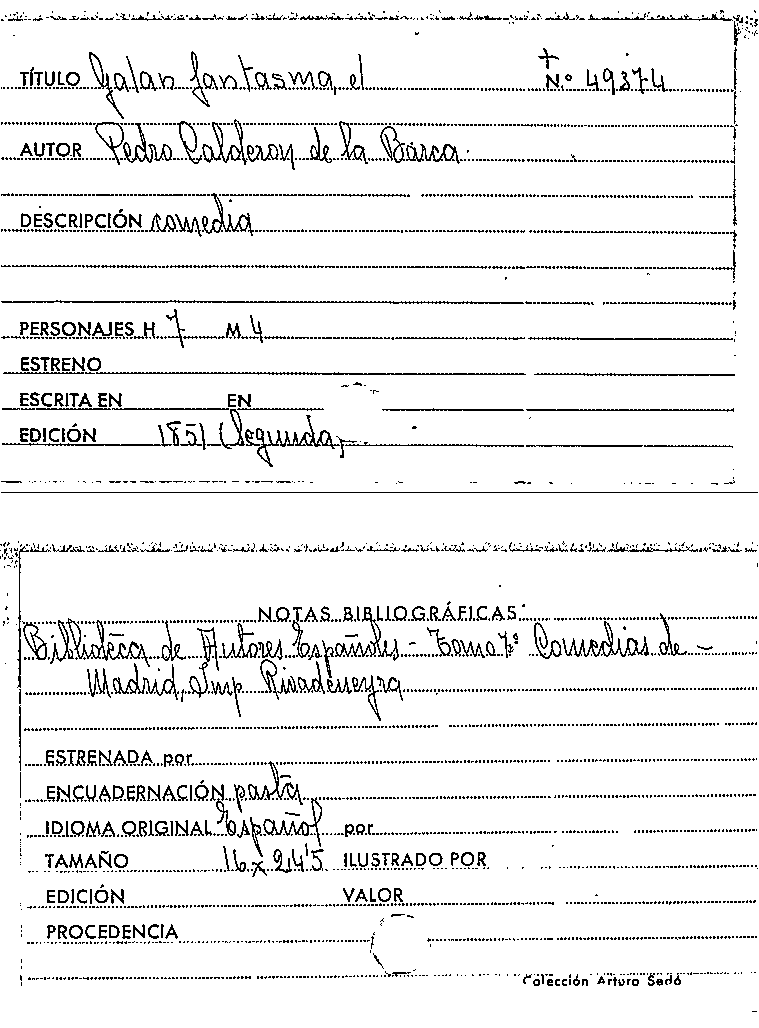 TÍTULO Galan fantasma, el Nº 49374
AUTOR Pedro Calderon de la Barca.
DESCRIPCIÓN comedia
PERSONAJES H 7 M 4
ESTRENO
ESCRITA EN EN
EDICIÓN 1851 (Segunda)
NOTAS BIBLIOGRÁFICAS:
Biblioteca de Autores Españoles - Tomo 7º Comedias de -
Madrid, Imp Rivadeneyra
ESTRENADA por
ENCUADERNACIÓN pasta
IDIOMA ORIGINAL Español por
TAMAÑO 16 x 24'5 ILUSTRADO POR
EDICIÓN VALOR
PROCEDENCIA
Colección Arturo Sedó